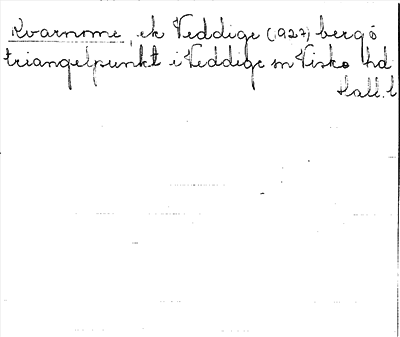 Kvarnome, ek Veddige (1927) berg ö
triangelpunkt i Veddige sn Viske hd
Hall. l